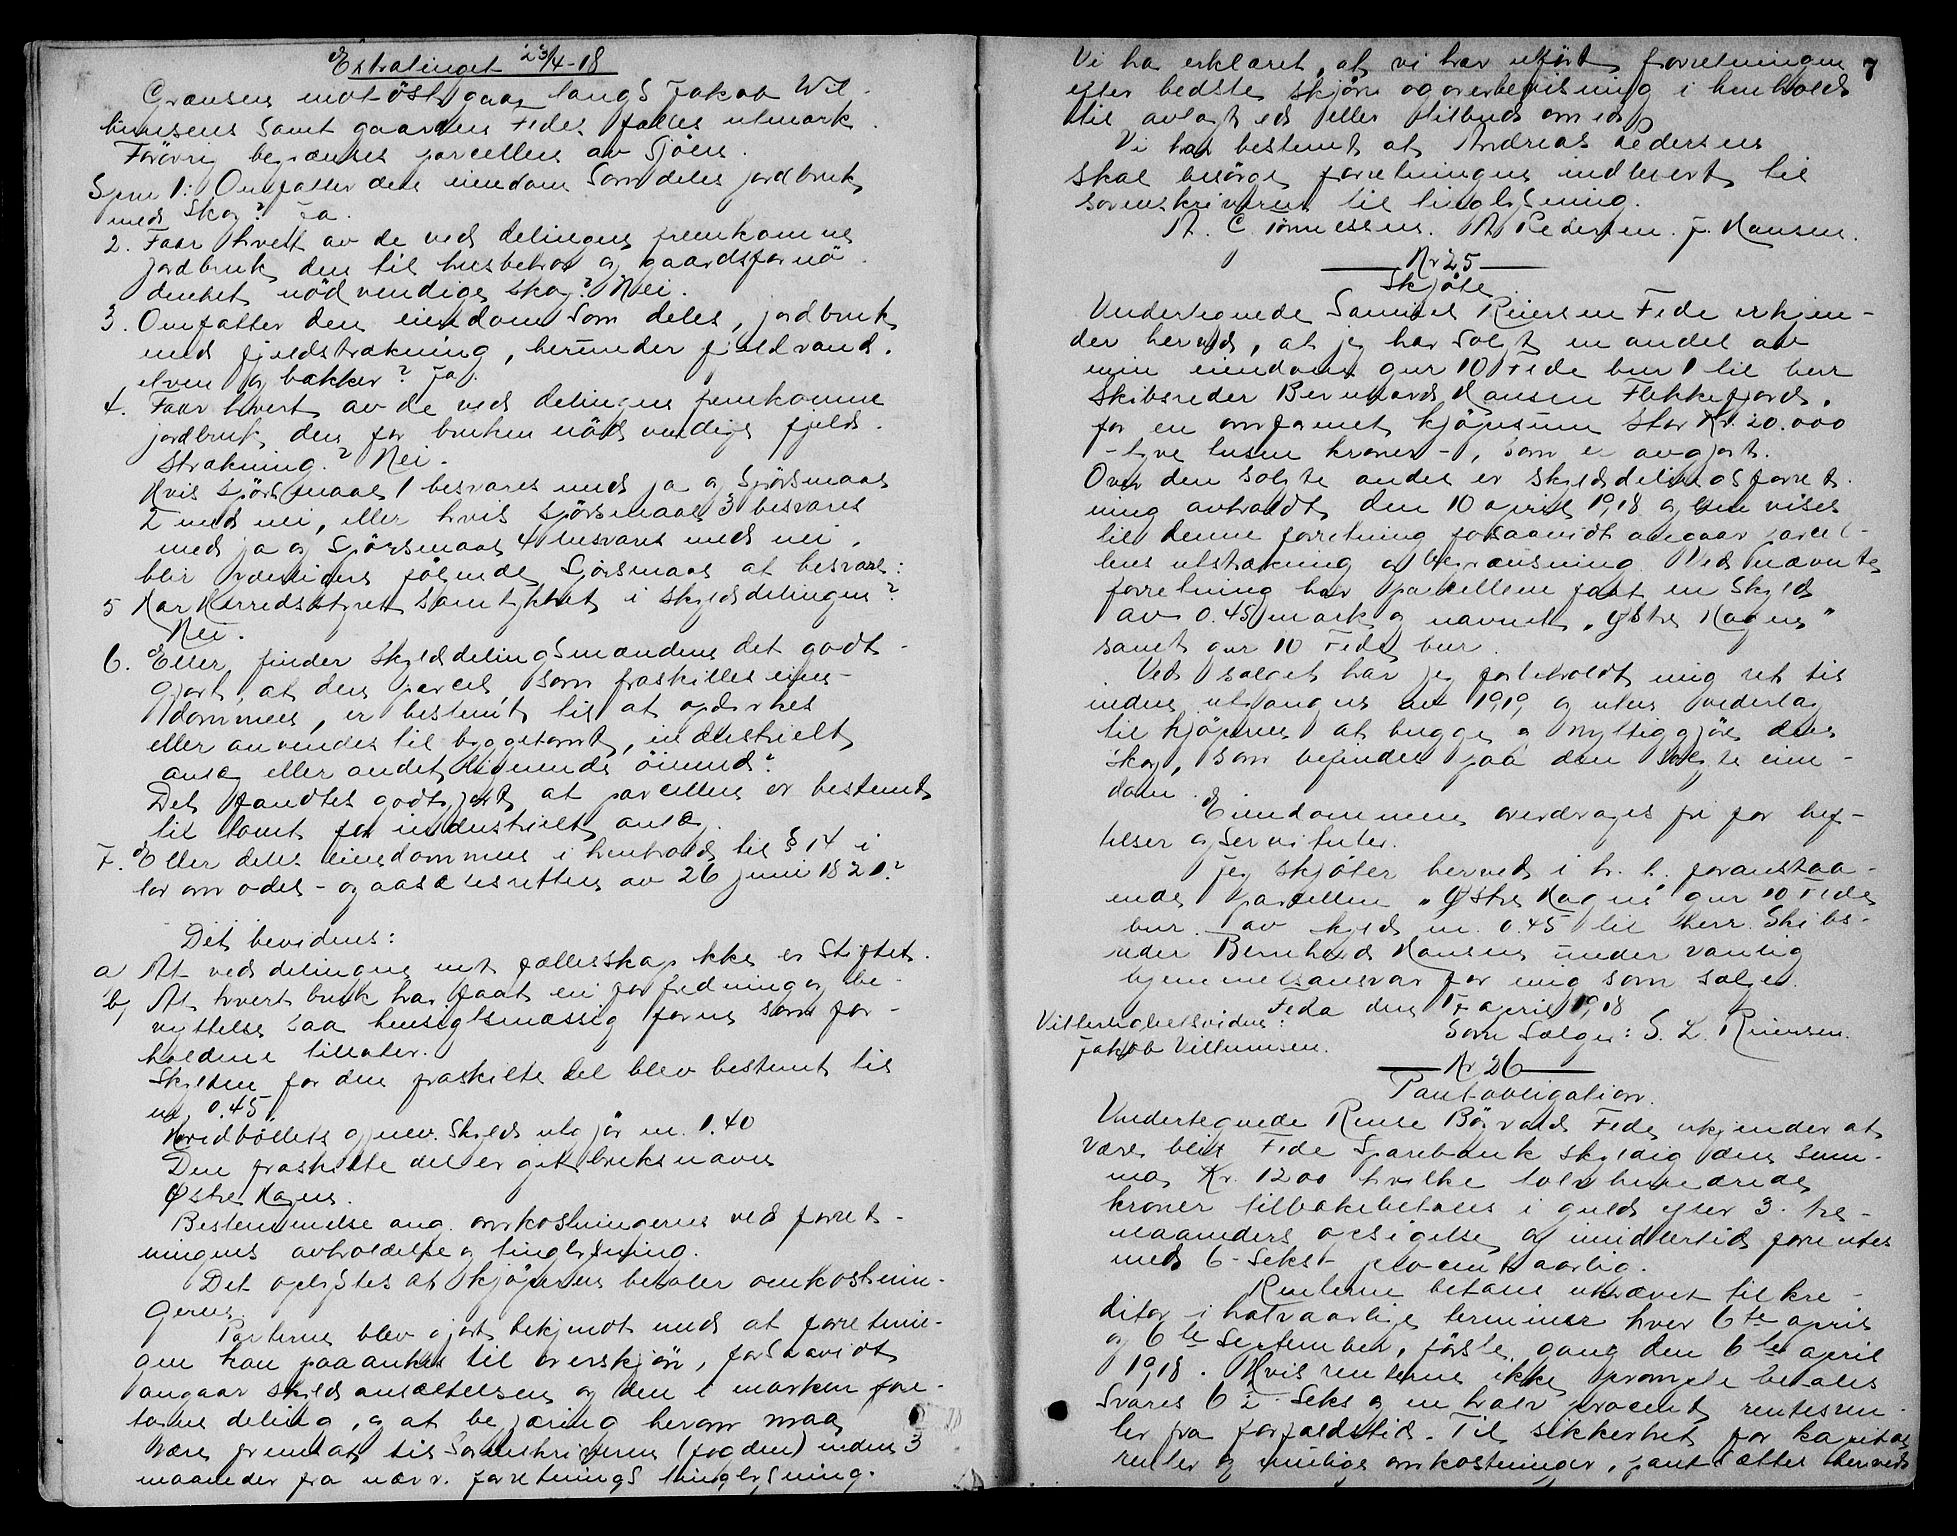 Extratinget 23/4-18
Grænsen mot öst gaar langs Jakob Wil-
lumsens samt gaarden Fedes fælles utmark.
Forövrig begrænses parcellen av Sjöen.
Spm 1: Omfatter den eiendom som deles jordbruk
med skog? Ja.
2. Faar hvert av de ved delingen fremkomne
jordbruk den til husbehov og gaardsfornö-
denhet nödvendige skog? Nei.
3. Omfatter den eiendom som deles, jordbruk
med fjeldstrækning, herunder fjeldvand,
elven og bækker? Ja.
4. Faar hvert av de ved delingen fremkomne
jordbruk den for bruken nödvendige fjeld-
strækning? Nei.
Hvis spörsmaal 1 besvares med ja og spörsmaal
2 med nei, eller hvis spörsmaal 3 besvares
med ja og spörsmaal 4 besvares med nei,
blir ydderligere fölgende spörsmaal at besvare:
5 Har Herredsstyret samtykket i skylddelingen?
Nei.
6. Eller finder skylddelingsmændene det godt-
gjort, at den parcel, som fraskilles eien-
dommen, er bestemt til at opdyrkes
eller anvendes til byggetomt, industrielt
anlæg eller andet lignende öiemed?
Det fandtes godtgjort at parcellen er bestemt
til tomt for industrielt anlæg.
7. Eller deles eiendommen i henhold til § 14 i
lov om odels- og aasætesretten av 26 juni 1821?
Det bevidnes:
a At ved delingen nyt fællesskap ikke er stiftet.
b, At hvert bruk har faat en for fredning og be-
nyttelse saa hensigtsmæssig form som for-
holdene tillater.
Skylden for den fraskilte del blev bestemt til
m. 0.45.
Hovedbölets gjenv. skyld utgjör m. 1.40
Den fraskilte del er git bruksnavn
Østre Hagen.
Bestemmelse ang. omkostningerne ved forret-
ningens avholdelse og tinglysning.
Det oplystes at kjöperen betaler omkostnin-
gerne.
Parterne blev gjort bekjendt med at forretnin-
gen kan paaankes til overskjön, forsaavidt
angaar skyldansættelsen og den i marken fore-
tagne deling, og at begjæring herom maa
være fremsat til Sorenskriveren (fogden) inden 3
maaneder fra nærv. forretnings tinglysning.
7
Vi ha erklæret, at vi har utfört forretningen
efter bedste skjön og overbevisning i henhold
til avlagt ed eller tilbud om ed.
Vi har bestemt at Andreas Pedersen
skal besörge forretningen indlevert til
sorenskriveren til tinglysning.
A. C. Tönnessen. A Pedersen. J. Hansen.
Nr 25
Skjöte.
Undertegnede Samuel Reiersen Fede erkjen-
der herved, at jeg har solgt en andel av
min eiendom gnr 10 Fede bnr 1 til herr
Skibsreder Bernhard Hansen Flekkefjord,
for en omforenet kjöpesum stor Kr. 20.000
-tyve tusen kroner-, som er avgjort.
Over den solgte andel er skylddelingsforret-
ning avholdt den 10 april 1918 og henvises
til denne forretning forsaavidt angaar parcel-
lens utstrækning og begrænsning. Ved nævnte
forretning har parcellen faat en skyld
av 0.45 mark og navnet „Østre Hagen"
samt gnr 10 Fede bnr .
Ved salget har jeg forbeholdt mig ret til
inden utgangen av 1919, og uten vederlag
til kjöperen at hugge og nyttiggjöre den
skog, som befinder paa den solgte eien-
dom.
Eiendommen overdrages fri for hef-
telser og servituter.
Jeg skjöter herved i h. t. foranstaa-
ende parcellen „Østre Hagen" gnr 10 Fede
bnr. av skyld m. 0.45 til herr Skibs-
reder Bernhard Hansen under vanlig
hjemmelsansvar for mig som sælger.
Feda den 17 april 1918
Vitterlighetsvidne:
Som Sælger: S. L. Reiersen.
Jakob Villumsen.
Nr 26
Pantobligation.
Undertegnede Rense Bögvald Fede erkjender at
være blit Fede Sparebank skyldig den sum-
ma Kr. 1200 hvilke tolv hundrede
kroner tilbakebetales i guld efter 3. tre-
maaneders opsigelse, og imidlertid forrentes
med 6-seks- procent aarlig.
Renterne betales ukrævet til kre-
ditor i halvaarlige terminer hver 6te april
og 6te September, förste gang den 6te april
1918. Hvis renterne ikke prompte betales
svares 6½ seks og en halv procent rentesren-
ter fra forfaldstid. Til sikkerhet for kapital
renter og mulige omkostninger, pantsætter herved